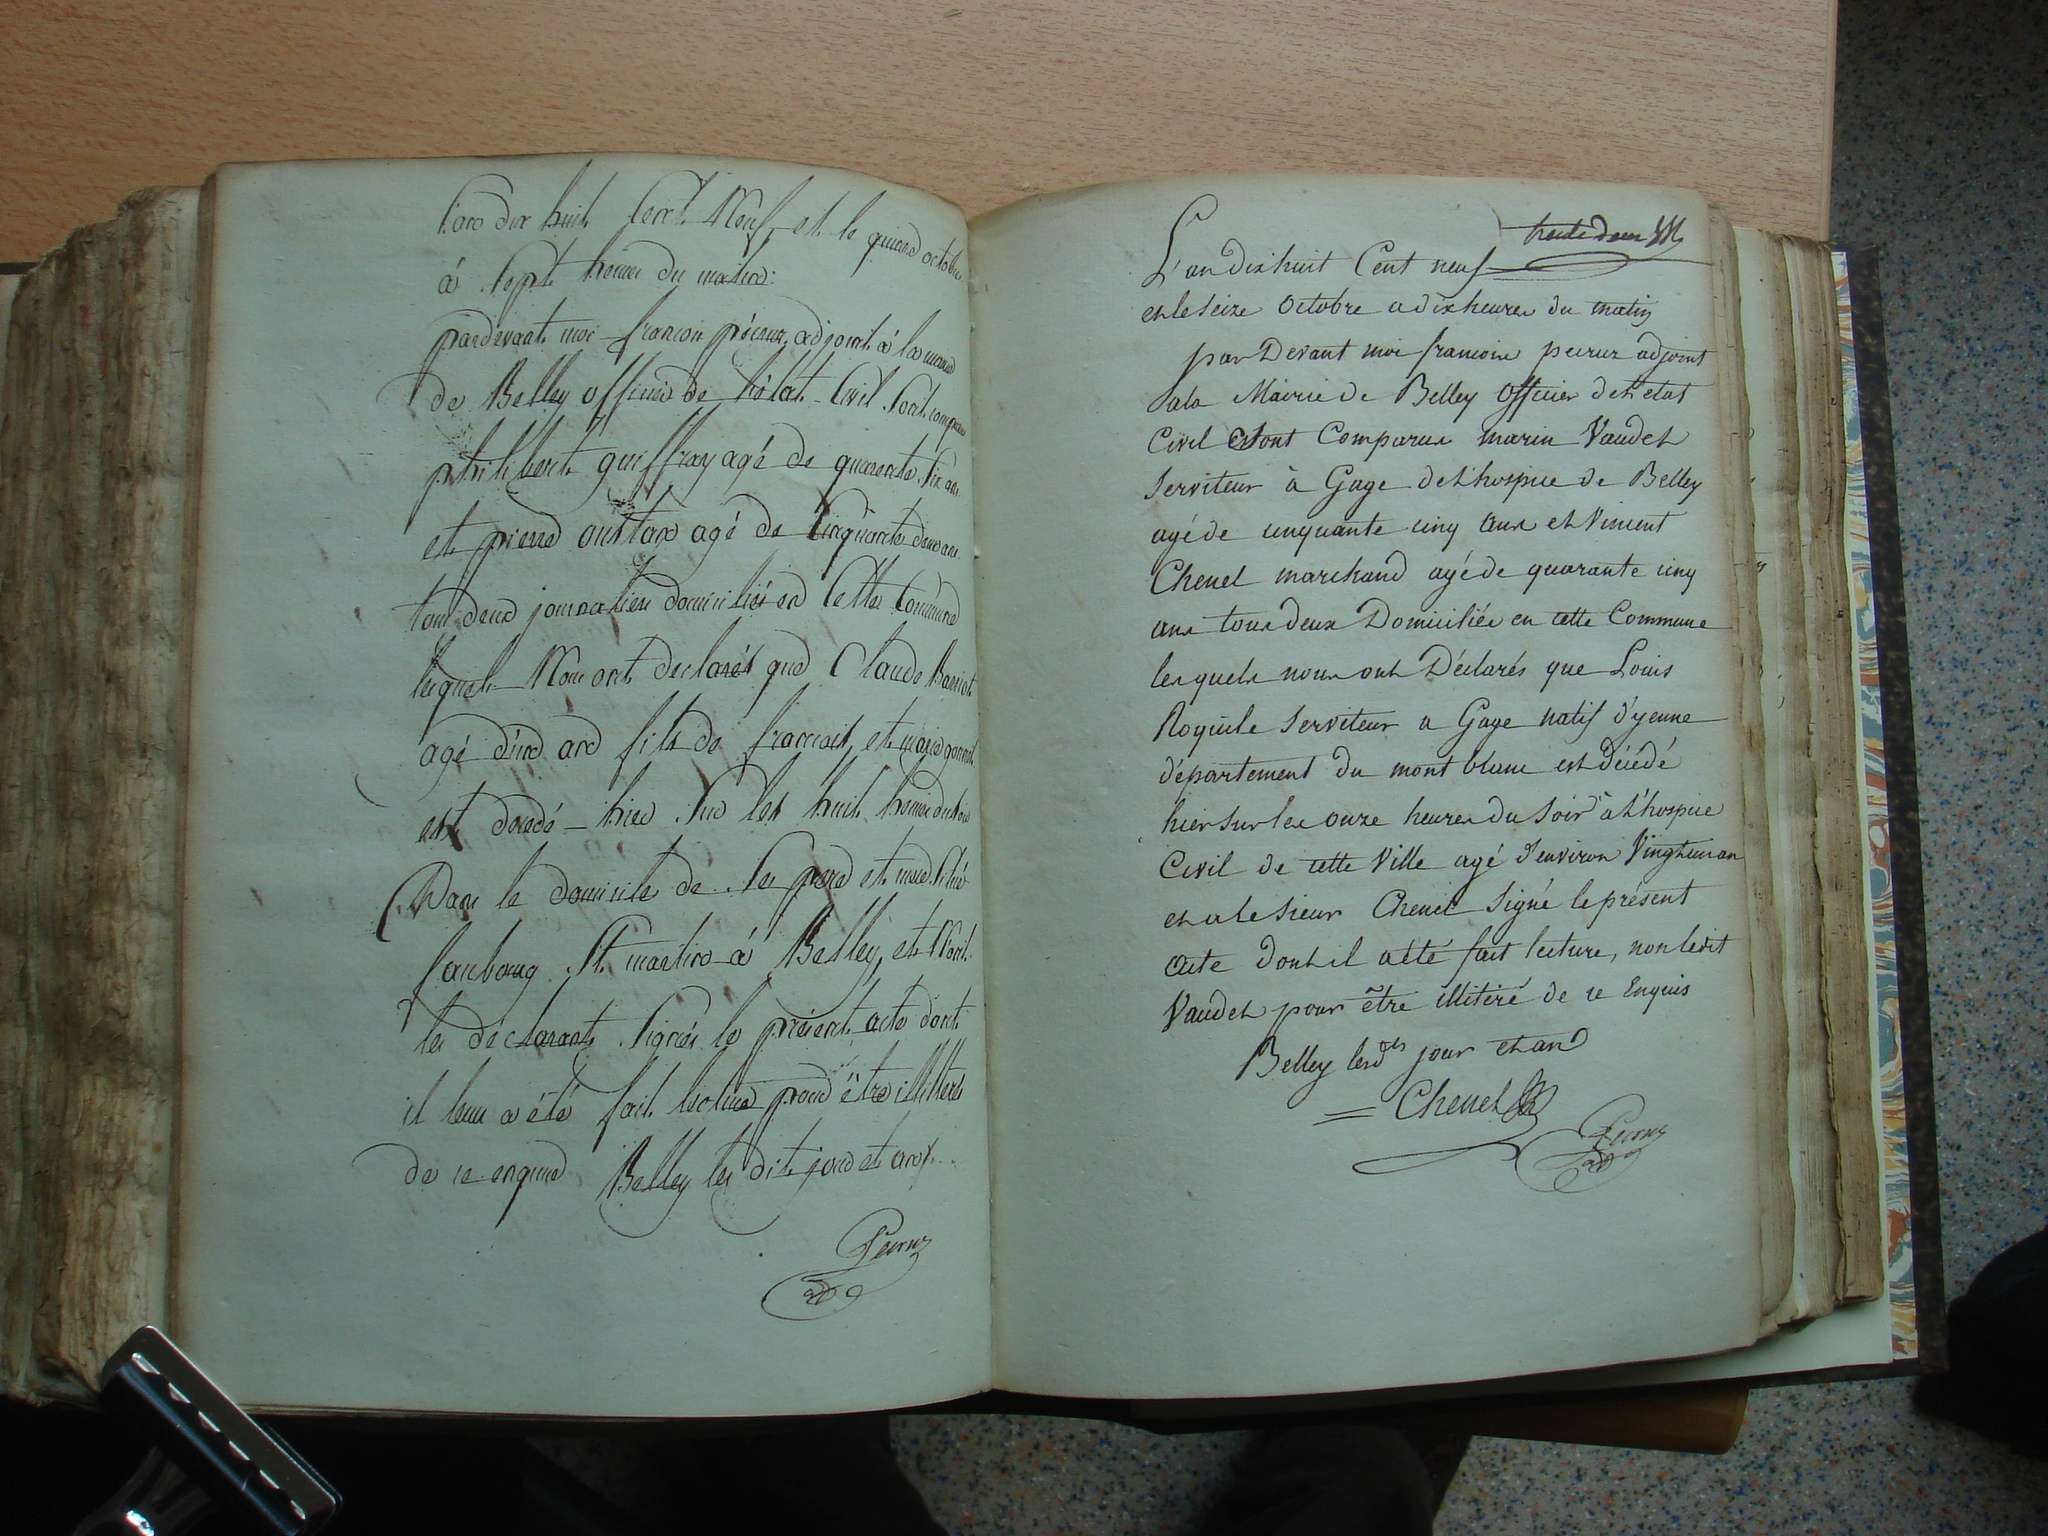 l'an dix huit Cent Neuf, et le quinze octobre
à Sept heures du matin:
pardevant moi françois péeruz adjoint à la mairie
de Belley officier de l'état Civil Sont comparus
philibert guiffray agé de quarante Six ans
et pierre agé de Cinquante deux ans
tous deux journaliers domiciliés en Cette Commune
lesquels Nous ont déclarés que Claude
agé d'un an fils de françois et marie
est décédé hier Sur les huit heures du soir
Dans le domicile de Ses père et mère Situé
faubourg St martin à Belley, et N'ont
les déclarants Signés le présent acte dont
il leur a été fait lecture pour être illitérés
de ce enquis Belley les dits jour et an
Peeruz
ad

trente deux
L'an dix huit Cent neuf
et le seize octobre a dix heures du matin
par Devant moi francois peeruz adjoint
a la Mairie de Belley officier de l'etat
Civil sont Comparus marin Vaudet
Serviteur à Gage de l'hospice de Belley
agé de cinquante cinq ans et Vincent
Chenel marchand agé de quarante cinq
ans tous deux Domiciliés en cette Commune
lesquels nous ont Déclarés que Louis
Roquile Serviteur a Gage natif d'yenne
département du mont blanc est Décédé
hier sur les onze heures du Soir à l'hospice
Civil de cette Ville agé d'environ Vingt un an
et a le sieur Chenel Signé le présent
acte dont il a été fait lecture, non ledit
Vaudet pour être illitéré de ce Enquis
Belley les d. jour et an
Chenel
Peeruz
ad